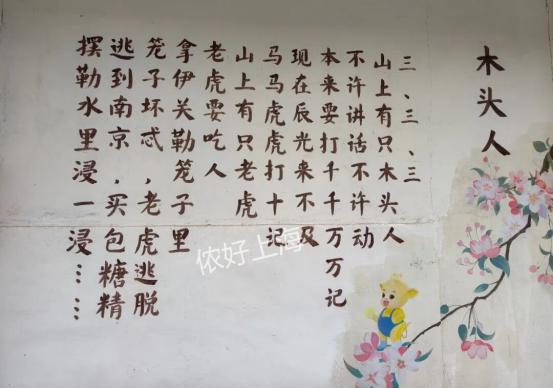 木头人
三、三、三
山上有只木头人
不许讲话不许动
本来要打千千万万记
现在辰光来不及
马马虎虎打十记
山上有只老虎
老虎要吃人
拿伊关勒笼子里
笼子坏忒,老虎逃脱
逃到南京,买包糖精
摆勒水里浸一浸……
侬好上海